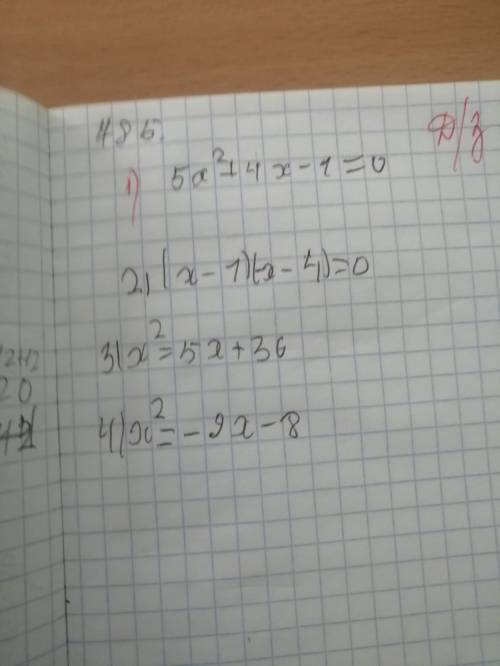 #85.
Д/з
1) 5x²+4x-1=0
2) (x-1)(x-4)=0
3) x²=5x+36
4) x²=-9x-8
20